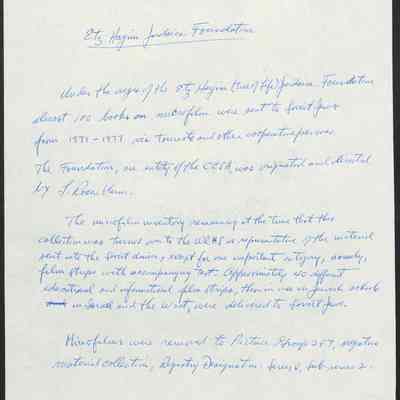 Etz Hayim Judaica Foundation
Under the aegis of the Etz Hayim (tree of life) Judaica Foundation
almost 100 books on microfilm were sent to Soviet Jews
from 1971-1977 via tourists and other cooperative persons.
The Foundation, an entity of the CCSA, was originated and directed
by L. Rosenblum.
The microfilm inventory remaining at the time that this
collection was turned over to the WRHS is representative of the material
sent into the Soviet Union, except for one important category, namely,
film strips with accompanying text. Approximately 40 different
educational and informational film strips, then in use in Jewish schools
in Israel and the West, were delivered to Soviet Jews.
Microfilms were removed to Picture Group 257, negative
material collection, Registry Designation: Series V, Sub-series 2.